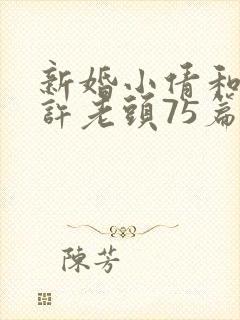 新婚小倩和
許老頭75篇
陳芳